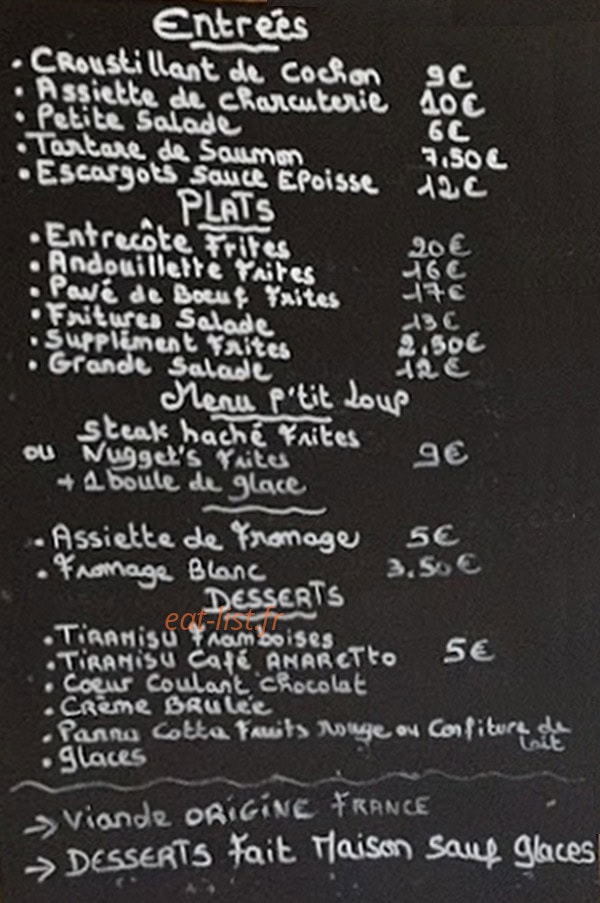 Entrées
• Croustillant de Cochon 9€
• Assiette de charcuterie 10€
• Petite Salade 6€
• Tartare de Saumon 7,50€
• Escargots Sauce Epoisse 12€
PLATS
• Entrecôte Frites 20€
• Andouillette Frites 16€
• Pavé de Boeuf Frites 17€
• Fritures Salade 13€
• Supplément Frites 2,50€
• Grande Salade 12€
Menu P'tit Loup
Steak haché Frites
ou Nugget's Frites 9€
+ 1 boule de glace
• Assiette de Fromage 5€
• Fromage Blanc 3.50€
DESSERTS
eat-list.fr
• TIRAMISU Framboises
• TIRAMISU Café AMARETTO 5€
• Coeur Coulant Chocolat
• Crème Brulée
• Panna Cotta Fruits Rouge ou Confiture de lait
• glaces
→ Viande ORIGINE FRANCE
→ DESSERTS Fait Maison Sauf glaces